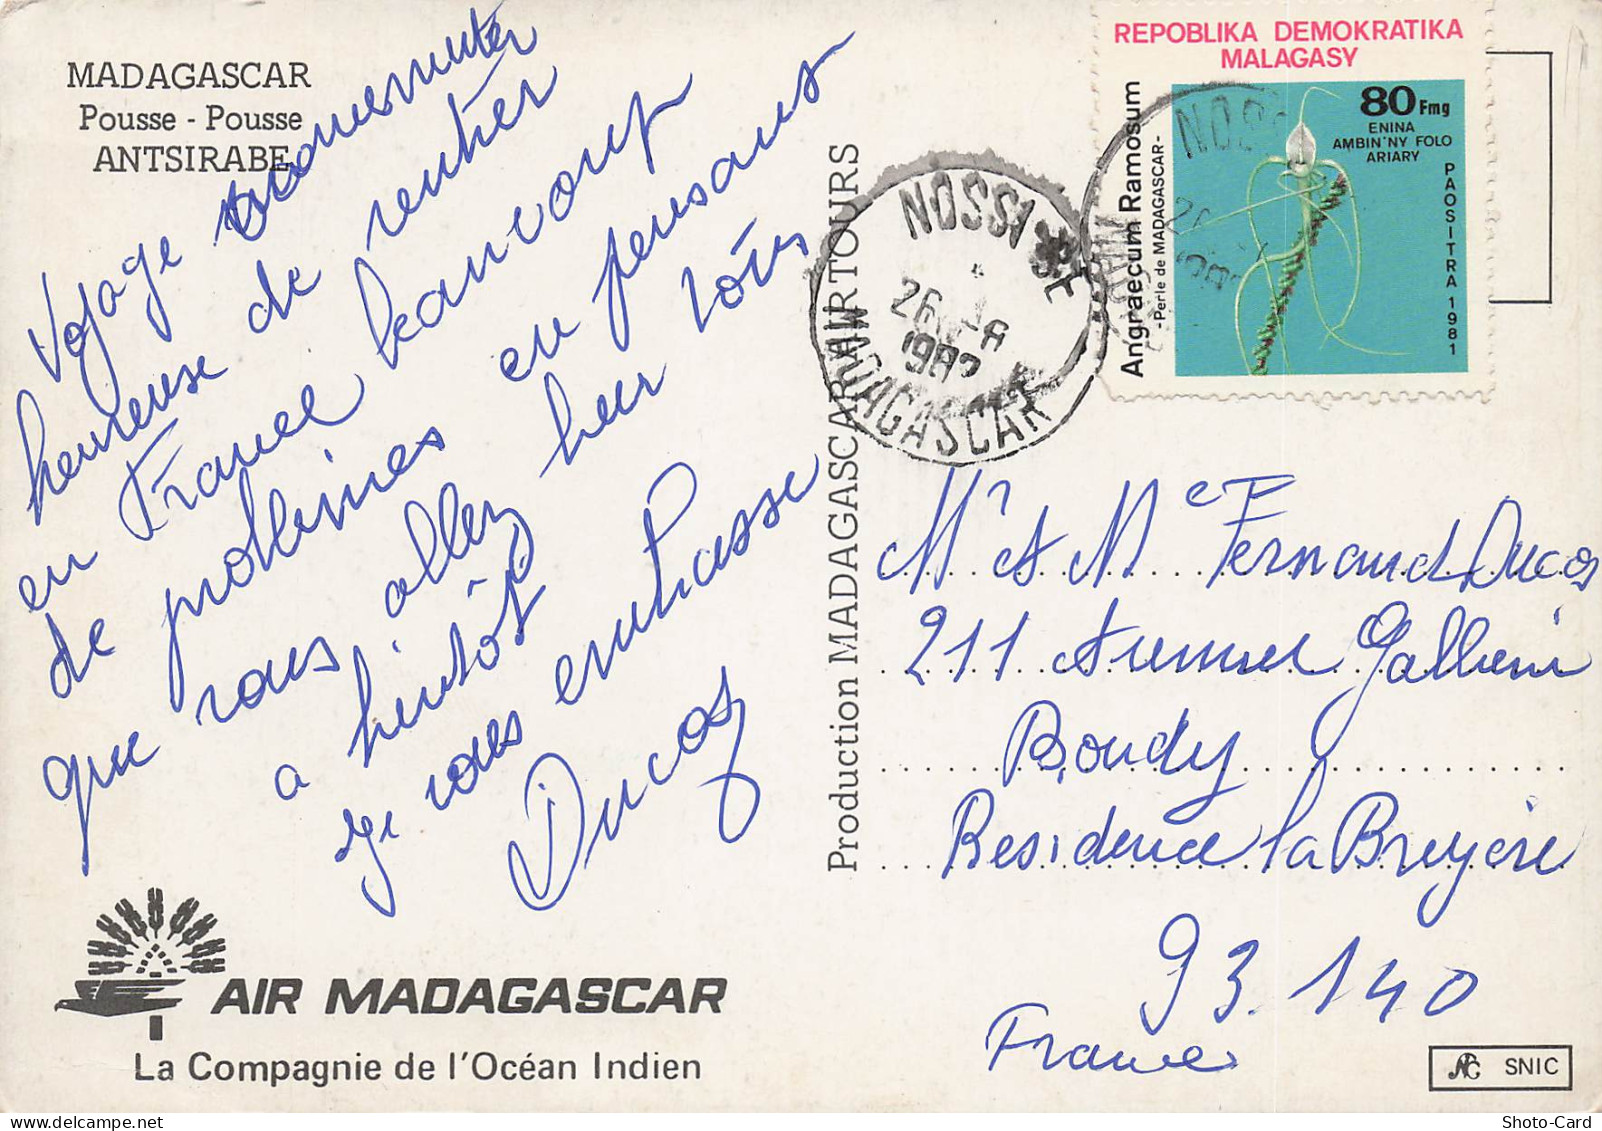 MADAGASCAR
Pousse - Pousse
ANTSIRABE
Voyage mouvementer
heureuse de rentrer
en France beaucoup
de problèmes en pensans
que vous allez bien vous
a bientôt
Je vous embrasse
Ducos
AIR MADAGASCAR
La Compagnie de l'Océan Indien
Production MADAGASCAR AIRTOURS
REPOBLIKA DEMOKRATIKA
MALAGASY
80 Fmg
ENINA
AMBIN'NY FOLO
ARIARY
Angraecum Ramosum
-Perle de MADAGASCAR-
PAOSITRA 1981
NOSSI BE
26
MADAGASCAR
NOSSI
26
Mr & Me Fernand Ducos
211 Avenue Gallieni
Bondy
Residence la Bruyère
93.140
France
SNIC
Shoto-Card